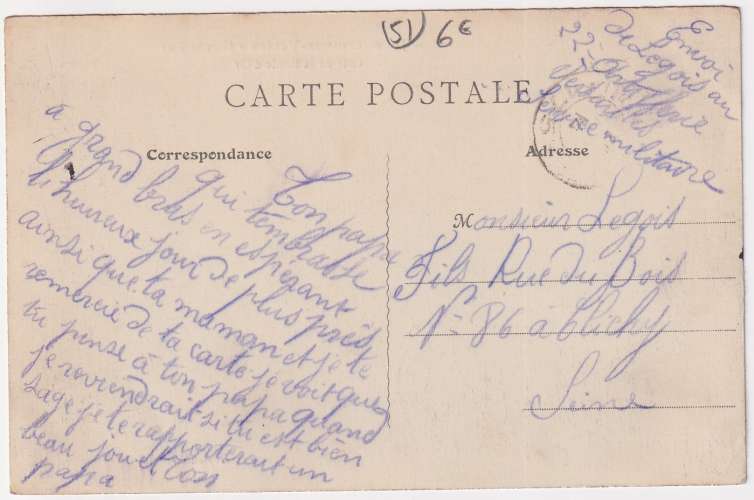 (51) 6€
Envoi
de Legois au
22e Artillerie
Versailles
Service militaire
CARTE POSTALE
Correspondance
Adresse
Ton papa
qui t'embrasse
à grand bras en espérant
l'heureux jour de plus près
ainsi que ta maman et je te
remercie de ta carte je voit que
tu pense à ton papa quand
je reviendrait si tu est bien
sage je te rapporterait un
beau jouet Ton
papa
Monsieur Legois
Fils Rue du Bois
N° 86 à Clichy
Seine